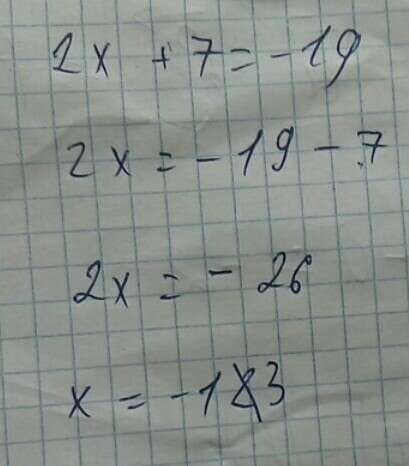 2x + 7 = -19
2x = -19 - 7
2x = - 26
x = -13